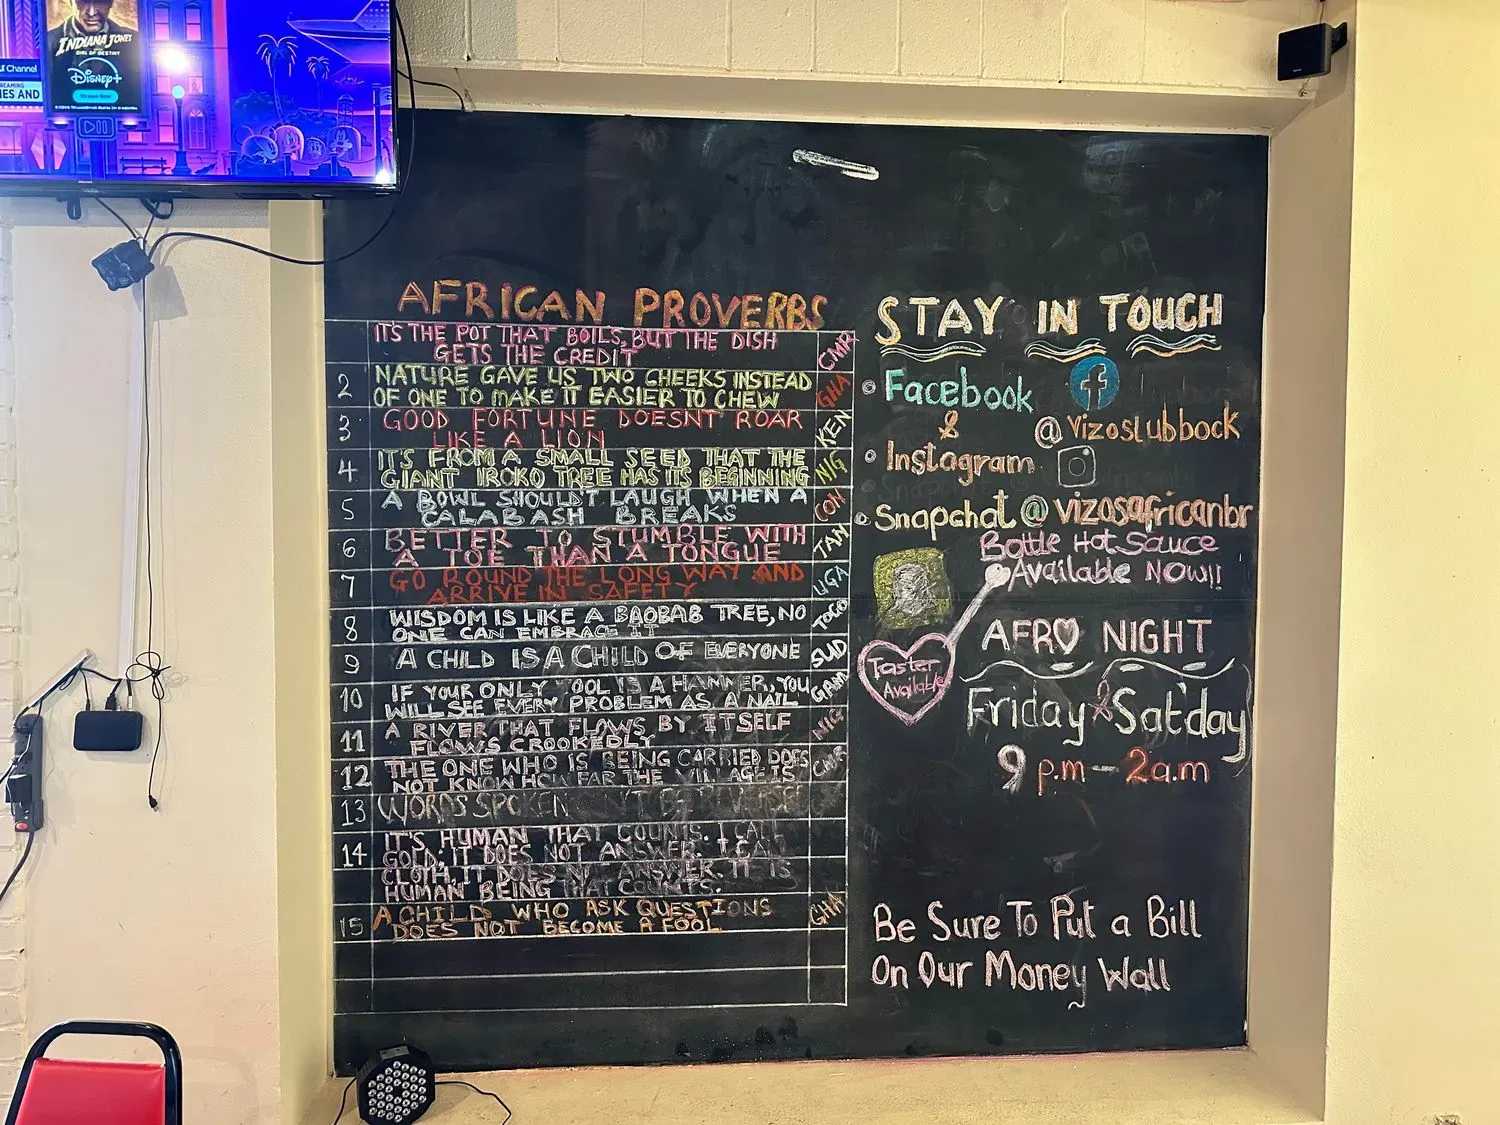 INDIANA JONES
DIAL OF DESTINY
Disney+
Channel
IES AND
AFRICAN PROVERBS
IT'S THE POT THAT BOILS, BUT THE DISH
GETS THE CREDIT
CMR
2
NATURE GAVE US TWO CHEEKS INSTEAD
OF ONE TO MAKE IT EASIER TO CHEW
GHA
3
GOOD FORTUNE DOESNT ROAR
LIKE A LION
KEN
4
IT'S FROM A SMALL SEED THAT THE
GIANT IROKO TREE HAS ITS BEGINNING
NIG
5
A BOWL SHOULDN'T LAUGH WHEN A
CALABASH BREAKS
CON
6
BETTER TO STUMBLE WITH
A TOE THAN A TONGUE
TAN
7
GO ROUND THE LONG WAY AND
ARRIVE IN SAFETY
UGA
8
WISDOM IS LIKE A BAOBAB TREE, NO
ONE CAN EMBRACE IT
TOGO
9
A CHILD IS A CHILD OF EVERYONE
SUD
10
IF YOUR ONLY TOOL IS A HAMMER, YOU
WILL SEE EVERY PROBLEM AS A NAIL
GAM
11
A RIVER THAT FLOWS BY ITSELF
FLOWS CROOKEDLY
NIG
12
THE ONE WHO IS BEING CARRIED DOES
NOT KNOW HOW FAR THE VILLAGE IS
CMR
13
WORDS SPOKEN
14
IT'S HUMAN THAT COUNTS. I CALL
GOLD; IT DOES NOT ANSWER. I CALL
CLOTH, IT DOES NOT ANSWER. IT IS
HUMAN BEING THAT COUNTS.
15
A CHILD WHO ASK QUESTIONS
DOES NOT BECOME A FOOL
GHA
STAY IN TOUCH
Facebook f
& @vizoslubbock
Instagram
Snapchat @vizosafricanbr
Bottle Hot Sauce
Available Now!!
Taster
Available
AFRO NIGHT
Friday & Sat'day
9 p.m - 2a.m
Be Sure To Put a Bill
On Our Money Wall